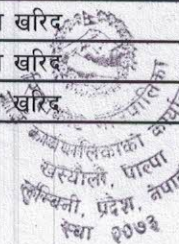 खरिद
खरिद
खरिद
पालिका
कार्यपालिकाको कार्या
खस्यौली, पाल्पा
लुम्बिनी, प्रदेश, नेपाल
२०७३